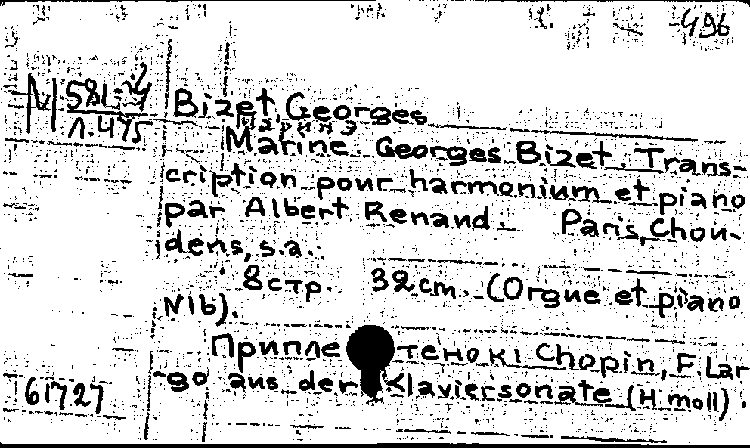 496
N 581-4
л.475
Bizet, Georges
Марина
Marine. Georges Bizet. Trans-
cription pour harmonium et piano
par Albert Renaud. Paris, Chou-
dens, s.a.
8 стр. 32 cm. (Orgue et piano
N1b).
Припле тено к: Chopin, F. Lar
go aus der Klaviersonate (H moll).
61727